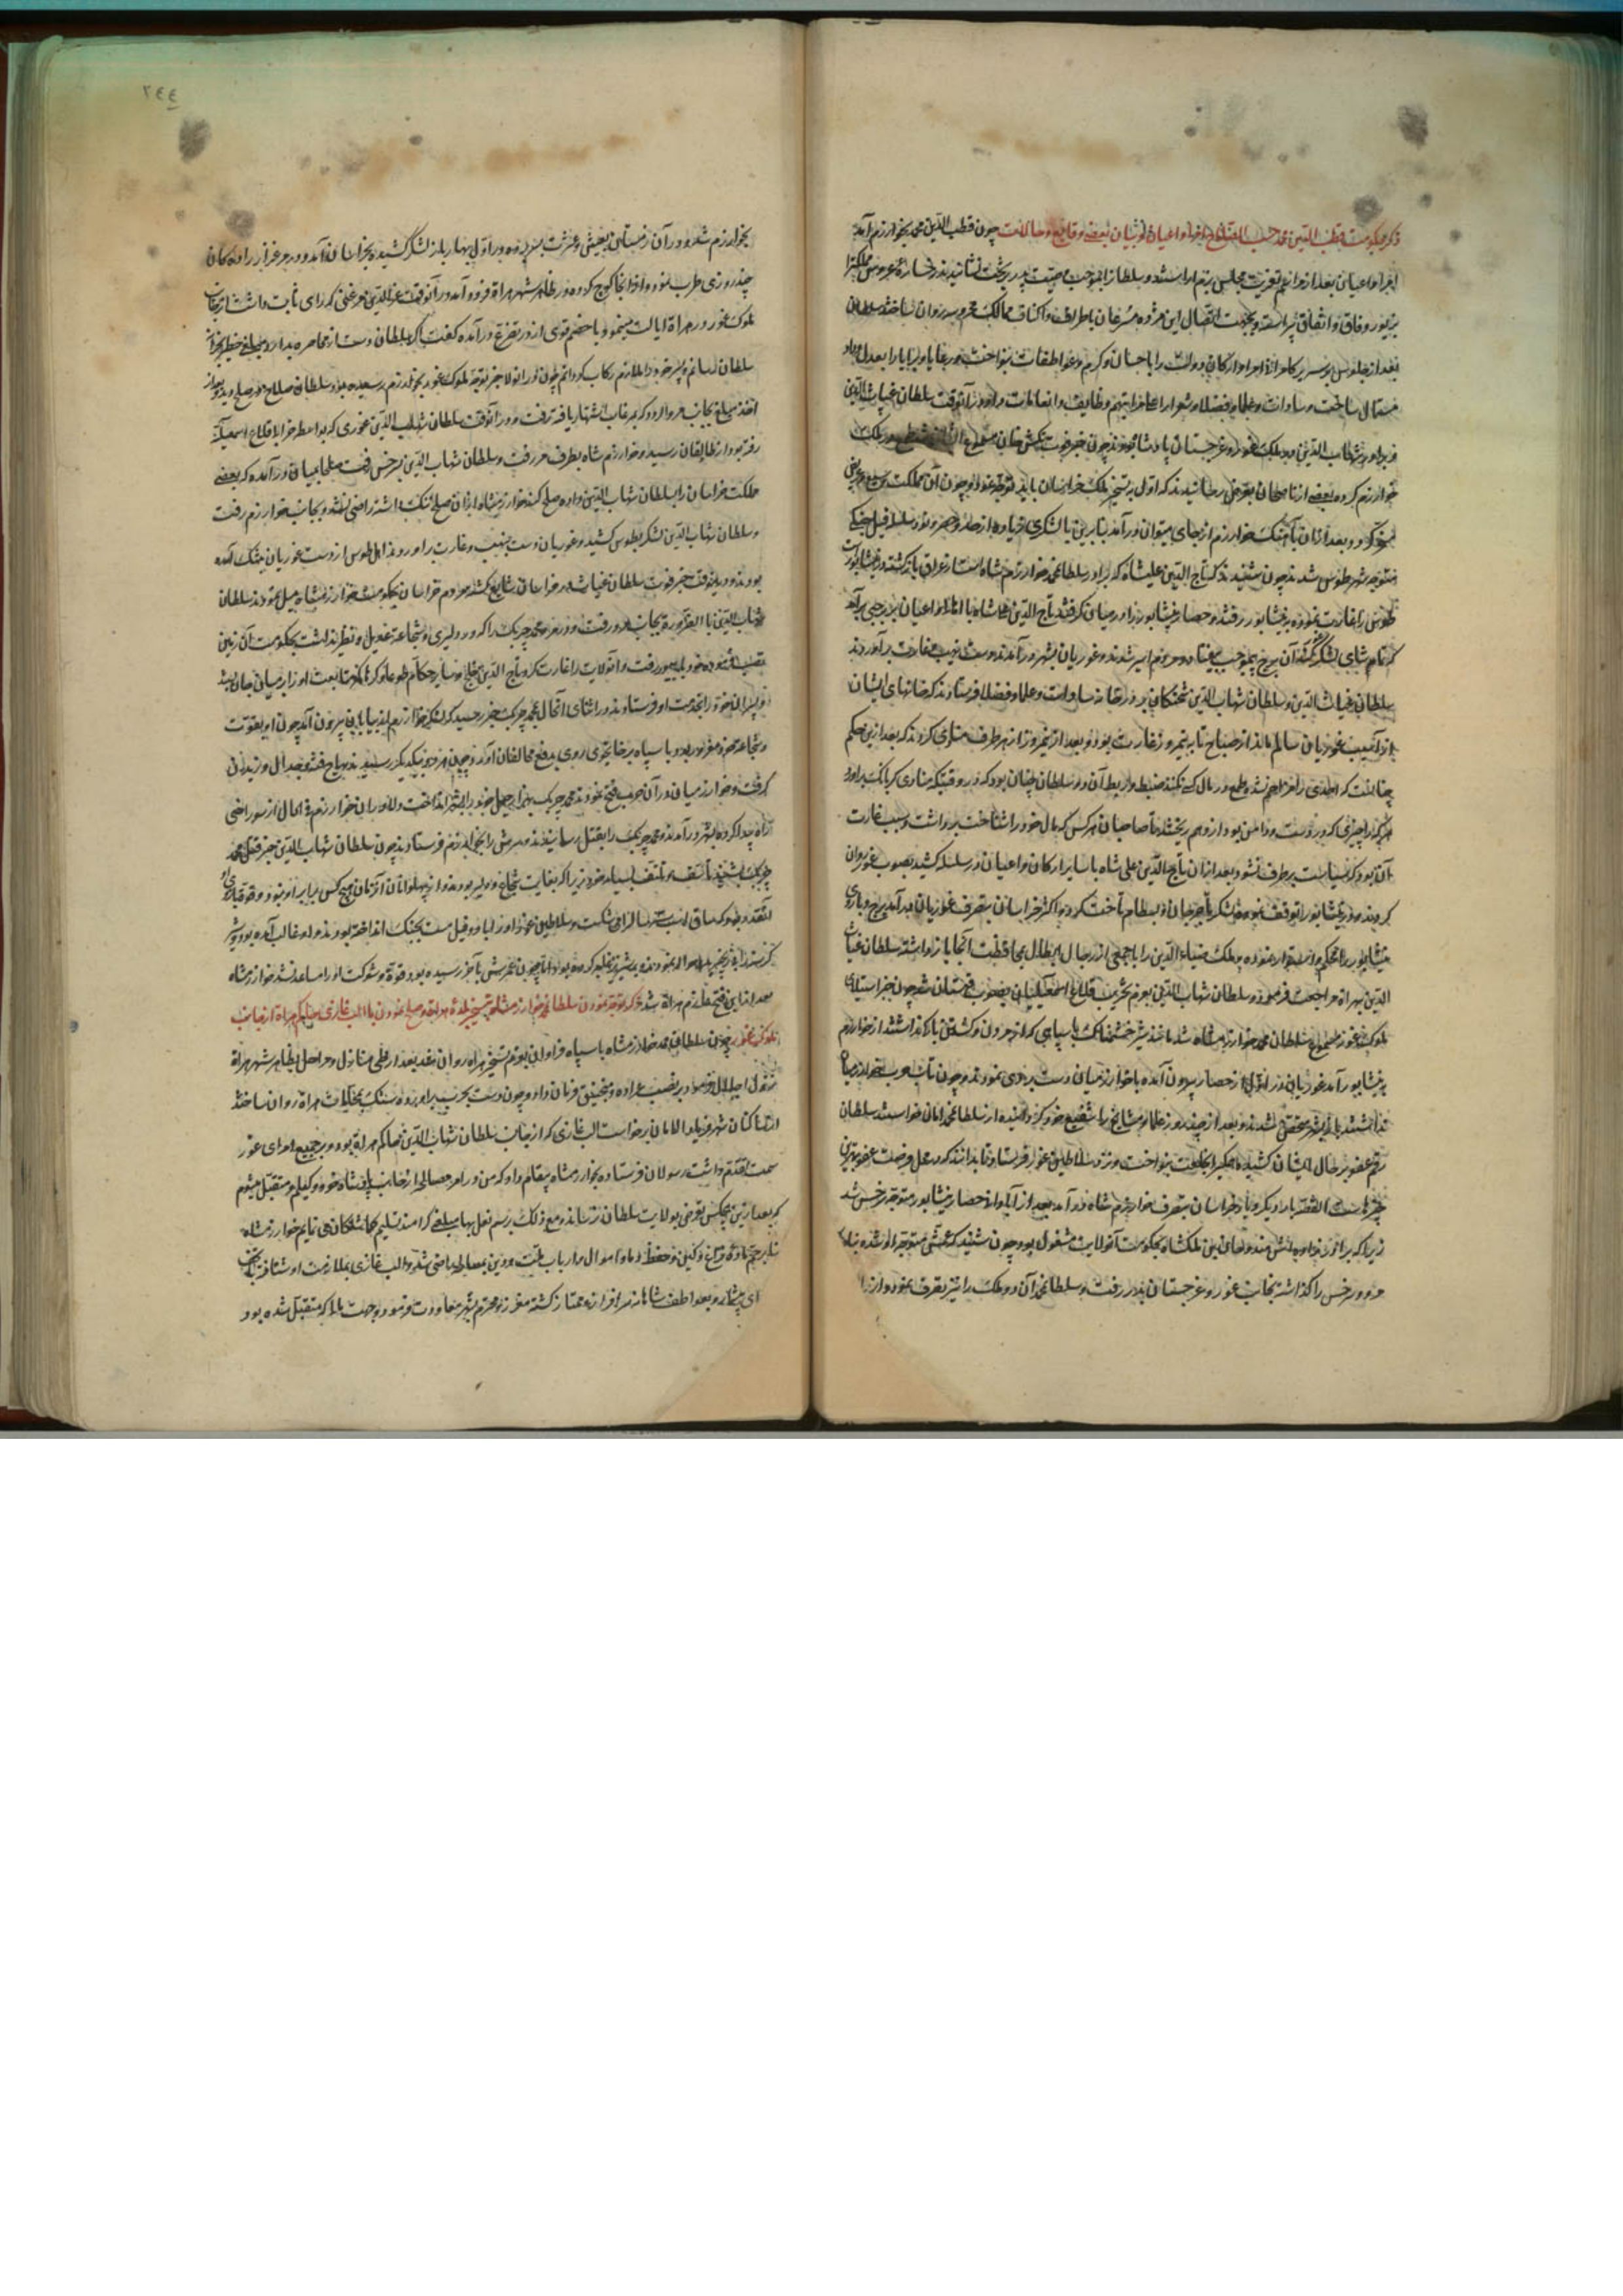 ذکر حکومت قطب الدین محمد و بیان بعضی وقایع و حالات چون قطب الدین محمد بخوارزم آمد
امرا و اعیان بعد از مراسم تعزیت مجلس بزم اراستند و سلطانرا بموجب وصیت پدر بر تخت نشانیدند رخساره عروس مملکترا
بزیور وفاق و اتفاق و بجهت اتصال این مژده مسرعان باطراف و اکناف ممالک محروسه روان ساختند سلطان
بعد از جلوس بر سریر امرا و ارکان دولت را باحسان و کرم و عواطفات بنواخت و رعایا و برایا را بعدل و داد
مستمال ساخت و سادات و علما و فضلا و شعرا را وظایف و انعامات در آنوقت سلطان غیاث الدین
و برادرش شهاب الدین در ملک غور و غرجستان پادشاه بودند چون خبر فوت تکش خان در ملک
خوارزم کرده بعضی از ناصحان بعرض رسانیدند که اول به تسخیر ملک خراسان باید توجه نمود و چون آن مملکت
و بعد ازان بآهنگ خوارزم از جای میتوان درآمد بنابرین با لشکری زیاده از حد و حصر و نود سلسله فیل
متوجه شهر طوس شدند چون شنیدند که تاج الدین علیشاه که برادر سلطان محمد خوارزم شاه است از عراق بازگشته در نیشابورست
طوس را غارت نموده به نیشابور رفتند و حصار نیشابور را در میان گرفتند تاج الدین علیشاه با امرا و اعیان بر برجی برآمد
که تماشای لشکر کند آن برج بیفتاد و مردم اسیر شدند و غوریان بشهر درآمدند و دست بنهب و غارت برآوردند
سلطان غیاث الدین و سلطان شهاب الدین شحنگان بر در خانه سادات و علما و فضلا فرستادند که خانهای ایشان
از آسیب غوریان سالم ماند از صباح تا به نیمروز غارت بود و بعد از نیمروز از هر طرف منادی کردند که بعد ازین حکم
چنانست که احدی را مزاحم نشوند و طمع در مال کسی نکنند ضبط و ربط آن دو سلطان چنان بود که در وقتیکه منادی کرد بانک برآورد
هرکه را چیزی که در دست و دامن بود از وهم بریخت تا صاحبان هرکس که مال خود را شناخت برداشت و سبب غارت
آن بود که سیاست برطرف نشود بعد ازان تاج الدین علی شاه با سایر ارکان و اعیان در سلسله کشید بصوب غور روان
کردند و در نیشابور توقف نموده لشکر تا جرجان و بسطام تاخت کردند و اکثر خراسان بتصرف غوریان درآمد برج و باروی
نیشابور را محکم و استوار نموده ملک ضیاء الدین را با جمعی از رجال ابطال بمحافظت آنجا بازداشتند سلطان غیاث
الدین بهراة مراجعت فرمود و سلطان شهاب الدین بعزم تخریب قلاع اسمعیلیان بصوب قهستان شد چون خبر استیلای
ملوک غور مسموع سلطان محمد خوارزمشاه شد مانند شیر خشمناک با سپاهی که از مردن و کشتن باک نداشتند از خوارزم
به نیشابور آمد غوریان در اول از حصار بیرون آمده با خوارزمیان دست بردی نمودند و چون تاب حرب خوارزمیان
نداشتند باز بشهر متحصن شدند و بعد از چند روز علما و مشایخ را شفیع خود کردانیده از سلطان محمد امان خواستند سلطان
رقم عفو بر حال ایشان کشیده همگی را بخلعت بنواخت و نزد سلاطین غور فرستاد تا بدانند که در محل فرصت عفو بهترین
چیزهاست القصه بار دیگر بلاد خراسان بتصرف خوارزم شاه درآمد بعد از آبادانی حصار نیشابور متوجه سرخس شد
زیرا که برادرزاده‌اش هندوخان بن ملکشاه بحکومت آنولایت مشغول بود چون شنید که عمش متوجه او شده
مرو و سرخس را گذاشته بجانب غور و غرجستان بدر رفت و سلطان محمد آن دو ملک را نیز بتصرف نمود و ازانجا
٢٤٤
بخوارزم شد و در آن زمستان بعیش و عشرت بسر برد و در اول بهار باز لشکر کشیده بخراسان آمد و در مرغزار رادکان
چند روزی طرب نمود و از آنجا کوچ کرده در ظاهر شهر هراة فرود آمد در آنوقت عزالدین مرغنی که رای ثابت داشت از جانب
ملوک غور در هراة ایالت مینمود با خصم قوی از در تضرع درآمده گفت اگر سلطان دست از محاصره بدارد مبلغی خطیر بخزانه
سلطان رسانم و پسر خود را ملازم رکاب گردانم چون در آنولا خبر توجه ملوک غور بخوارزم رسیده بود سلطان صلاح در صلح دید و بعد از
اخذ مبلغ بجانب مروالرود که بمرغاب اشتهار یافته رفت و در آنوقت سلطان شهاب الدین غوری که بواسطه خرابی قلاع اسمعیلیه
رفته بود از طالقان رسید و خوارزم شاه بطرف مرو رفت و سلطان شهاب الدین بسرخس رفت صلحا بمیان درآمده که بعضی
مملکت خراسان را بسلطان شهاب الدین داده صلح کند خوارزمشاه ازان صلح ننگ داشته راضی نشد و بجانب خوارزم رفت
و سلطان شهاب الدین لشکر بطوس کشید و غوریان دست بنهب و غارت برآوردند اهل طوس از دست غوریان بتنگ آمده
بودند و در آنوقت خبر فوت سلطان غیاث الدین در خراسان شایع گشته مردم خراسان بحکومت خوارزمشاه میل نمودند سلطان
شهاب الدین بالضروره بجانب مرو رفت و در مرو محمد چربک را که در دلیری و شجاعت عدیل و نظیر نداشت بحکومت آن زمین
نصب نموده خود رفت و آنولایت را غارت کرد و تاج الدین خلج و سایر حکام طوعا و کرها متابعت او از میان جان
و پسران خود را بخدمت او فرستادند در اثنای آنحال بمحمد چربک خبر رسید که لشکر خوارزم از بیابان بیرون آمد چون او بقوت
و شجاعت خود مغرور بود با سپاه پرخاشجوی روی بدفع مخالفان آورد و چون هر دو بیکدیگر رسیدند هیاج فتنه و جدال ورزیدن
گرفت و خوارزمیان در آن حرب فتح نمودند محمد چربک بهزار حیل خود را بشهر انداخت و دلاوران خوارزم فی الحال از سور
راه پیدا کرده بشهر درآمدند و محمد چربک را بقتل رسانیدند و سرش را بخوارزم فرستادند چون سلطان شهاب الدین خبر قتل محمد
چربک شنید تاسف و تلهف بسیار خورد زیرا که بغایت شجاع و دلیر بود و از پهلوانان آن زمان هیچ کس برابر او نبود و قوت بازوی او
آنقدر بود که ساق اسب سه ساله را می شکست و سلاطین غور او را با دو فیل مست بجنک انداخته بودند و او غالب آمده بود و شیر
گرسنه را از زنجیر بدو حواله نمودند و بر شیر نیز غلبه کرده بود اما چون عمرش بآخر رسیده بود قوت و شوکت او را مساعد نشد خوارزمشاه
بعد از این فتح عازم هراة شد ذکر توجه نمودن سلطان محمد خوارزمشاه بتسخیر بلده هراة و صلح نمودن با الب غازی حاکم هراة از جانب
ملوک غور چون سلطان محمد خوارزمشاه با سپاه فراوان بعزم تسخیر هراة روان شد بعد از طی منازل و مراحل بظاهر شهر هراة
نزول اجلال فرمود بر نصب عراده و منجنیق فرمان داد و چون دست بحرب برآورده سنگ بمحلات هراة روان ساختند
از ساکنان شهر فریاد الامان برخاست الب غازی که از جانب سلطان شهاب الدین حاکم هراة بود و بر جمیع امرای غور
سمت تقدم داشت رسولان فرستاده بخوارزمشاه پیغام داد که من در امر مصالحه از جانب پادشاه خود وکیلم و متقبل میشوم
که بعد ازین هیچکس تعرض بولایت سلطان نرساند و مع ذلک برسم نعل بها مبلغی گرامند تسلیم گماشتگان می نمایم خوارزمشاه
بنابر و حفظ دماء و اموال بمصالحه راضی شد و الب غازی بملازمت او شتافته
و بعواطف شاهانه سرافراز و ممتاز گشته معزز و محترم بشهر معاودت فرمود و بجهت مالی که متقبل شده بود